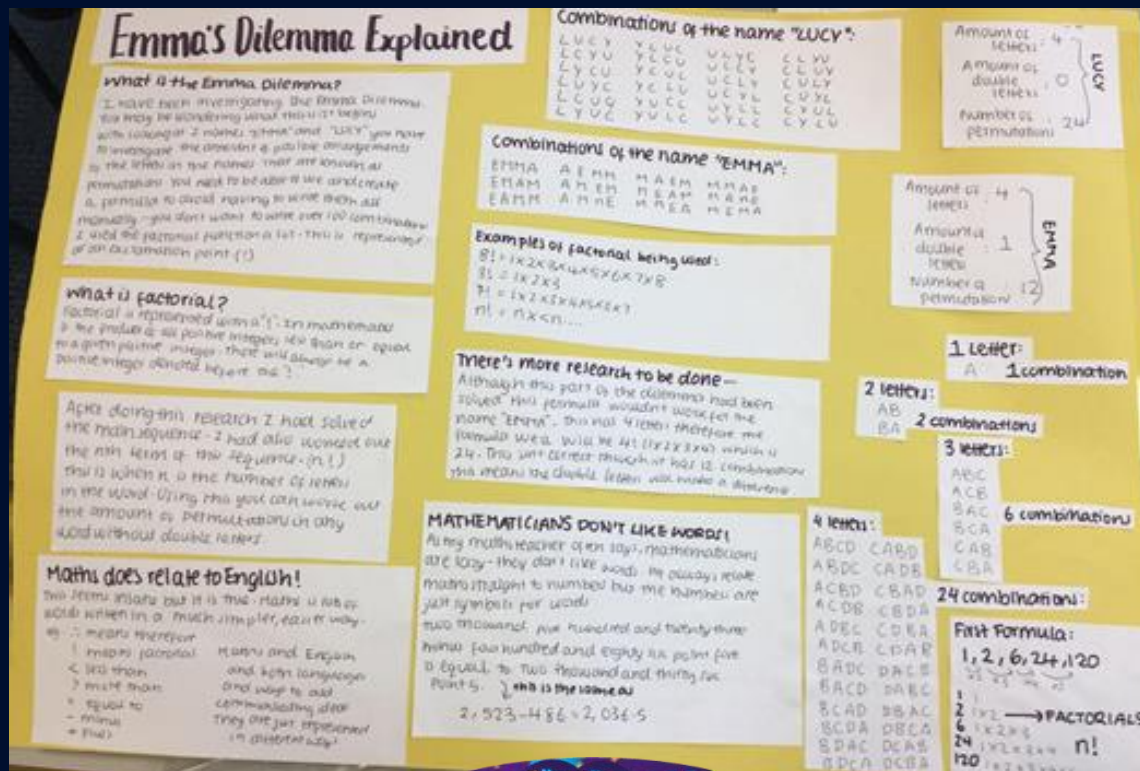 Emma's Dilemma Explained
What is the Emma Dilemma?
I have been investigating the Emma Dilemma.
You may be wondering what this is. It begins
with looking at 2 names "EMMA" and "LUCY" you have
to investigate the amount of possible arrangements
to the letters in the names that are known as
permutations. You need to be able to use and create
a formula to avoid having to write them all
manually - you don't want to write over 100 combinations
I used the factorial function a lot - this is represented
by an exclamation point (!)
What is factorial?
Factorial is represented with a "!". In mathematics
is the product of all positive integers, less than or equal
to a given positive integer. There will always be a
positive integer denoted before the !
After doing this research I had solved
the main sequence - I had also worked out
the nth term of this sequence. (n!)
this is when n is the number of letters
in the word. Using this you can work out
the amount of permutations in any
word without double letters.
Maths does relate to English!
This seems insane but it is true. Maths is lots of
words written in a much simpler, easier way.
eg ∴ means therefore
! means factorial
< less than
> more than
= equal to
- minus
+ plus
Maths and English
are both languages
and ways to
communicating ideas
They are just represented
in different ways!
Combinations of the name "LUCY":
Combinations of the name "EMMA":
EMMA AEMM MAEM MMAE
EMAM AMEM MEAM MAME
EAMM AMME MMEA MEMA
Examples of factorial being used:
8! = 1x2x3x4x5x6x7x8
3! = 1x2x3
7! = 1x2x3x4x5x6x7
n! = nx<n...
There's more research to be done—
Although this part of the dilemma had been
solved this formula wouldn't work for the
name "EMMA". This has 4 letters therefore the
formula used will be 4! (1x2x3x4) which is
24. This isn't correct though it has 12 combinations
this means the double letters will make a difference
MATHEMATICIANS DON'T LIKE WORDS!
As my maths teacher often says, mathematicians
are lazy - they don't like words. We always relate
maths straight to numbers but the numbers are
just symbols for words
two thousand, five hundred and twenty-three
minus four hundred and eighty six point five
is equal to two thousand and thirty six
point 5. this is the same as
2,523-486=2,036.5
Amount of letters : 4
Amount of double letters : 0
Number of permutations : 24
LUCY
Amount of letters : 4
Amount of double letters : 1
Number of permutations : 12
EMMA
1 letter:
A 1 combination
2 letters:
AB
BA 2 combinations
3 letters:
ABC
ACB
BAC 6 combinations
BCA
CAB
CBA
4 letters:
ABCD CABD
ABDC CADB
ACBD CBAD
ACDB CBDA
ADBC CDBA
ADCB CDAB
BADC DACB
BACD DABC
BCAD DBAC
BCDA DBCA
BDAC DCAB
BDCA DCBA
24 combinations:
First Formula:
1, 2, 6, 24, 120
1
2 1x2 → FACTORIALS
6 1x2x3
24 1x2x3x4 n!
120